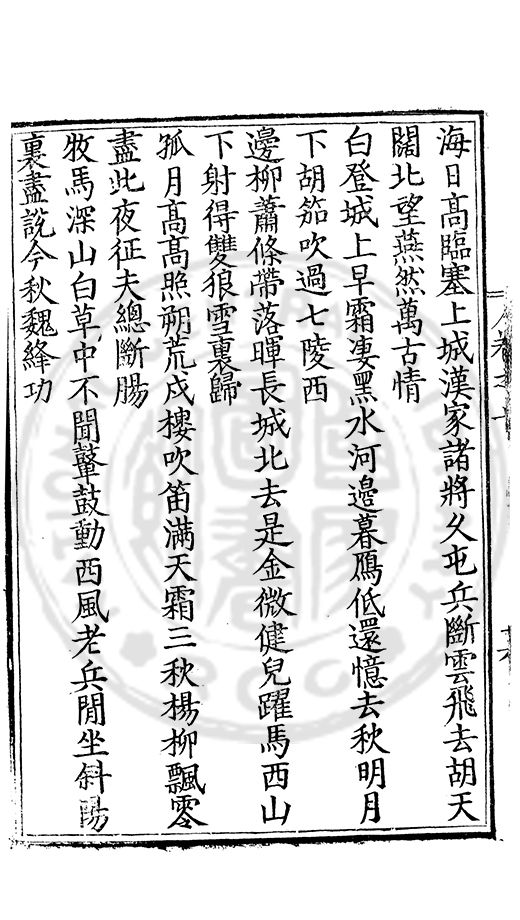 海日高臨塞上城漢家諸將久屯兵斷雲飛去胡天
闊北望燕然萬古情
白登城上早霜凄黑水河邊暮鴈低還憶去秋明月
下胡笳吹過七陵西
邊柳蕭條帶落暉長城北去是金微健兒躍馬西山
下射得雙狼雪裏歸
孤月高高照朔荒戍樓吹笛滿天霜三秋楊柳飄零
盡此夜征夫總斷腸
牧馬深山白草中不聞鼙鼓動西風老兵閒坐斜陽
裏盡說今秋魏絳功